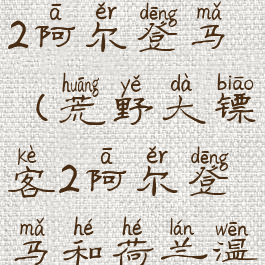 ā ěr dēng mǎ
2阿尔登马
huāng yě dà biāo
（荒野大镖
kè ā ěr dēng
客2阿尔登
mǎ hé hé lán wēn
马和荷兰温